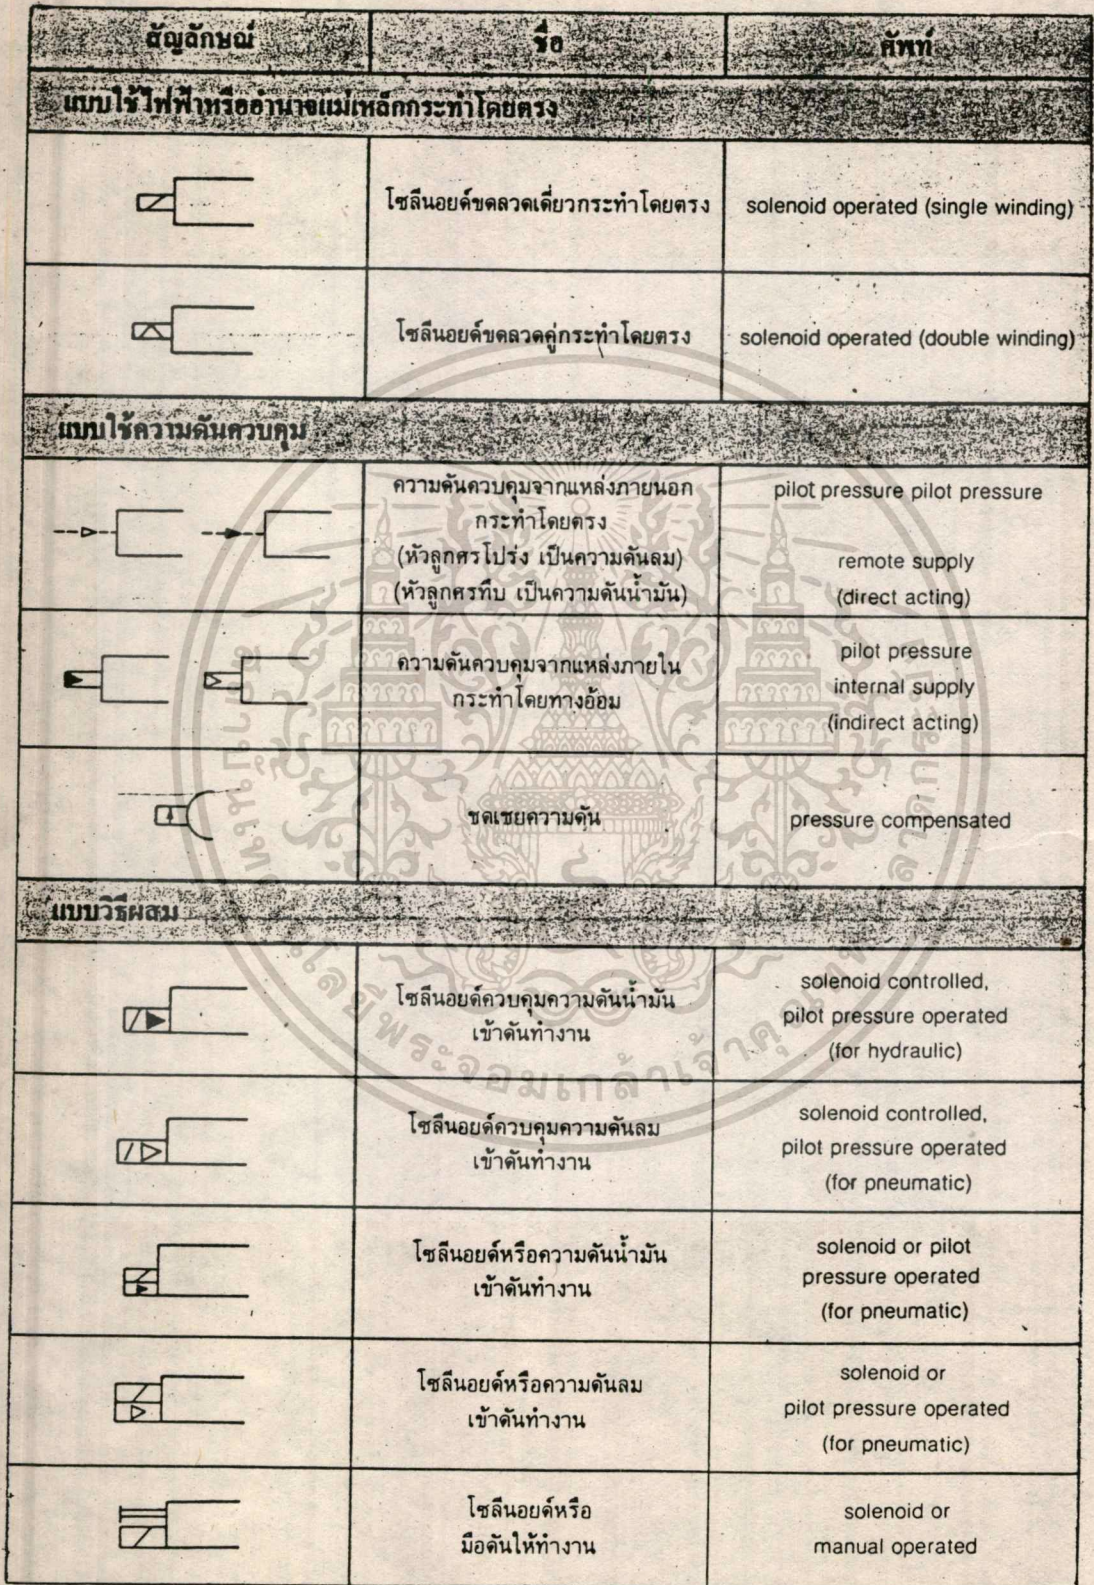 สัญลักษณ์ ชื่อ ศัพท์
แบบใช้ไฟฟ้าหรืออำนาจแม่เหล็กกระทำโดยตรง
โซลีนอยด์ขดลวดเดี่ยวกระทำโดยตรง solenoid operated (single winding)
โซลีนอยด์ขดลวดคู่กระทำโดยตรง solenoid operated (double winding)
แบบใช้ความดันควบคุม
ความดันควบคุมจากแหล่งภายนอก
กระทำโดยตรง
(หัวลูกศรโปร่ง เป็นความดันลม)
(หัวลูกศรทึบ เป็นความดันน้ำมัน)
pilot pressure pilot pressure
remote supply
(direct acting)
ความดันควบคุมจากแหล่งภายใน
กระทำโดยทางอ้อม
pilot pressure
internal supply
(indirect acting)
ชดเชยความดัน pressure compensated
แบบวิธีผสม
โซลีนอยด์ควบคุมความดันน้ำมัน
เข้าดันทำงาน
solenoid controlled,
pilot pressure operated
(for hydraulic)
โซลีนอยด์ควบคุมความดันลม
เข้าดันทำงาน
solenoid controlled,
pilot pressure operated
(for pneumatic)
โซลีนอยด์หรือความดันน้ำมัน
เข้าดันทำงาน
solenoid or pilot
pressure operated
(for pneumatic)
โซลีนอยด์หรือความดันลม
เข้าดันทำงาน
solenoid or
pilot pressure operated
(for pneumatic)
โซลีนอยด์หรือ
มือดันให้ทำงาน
solenoid or
manual operated